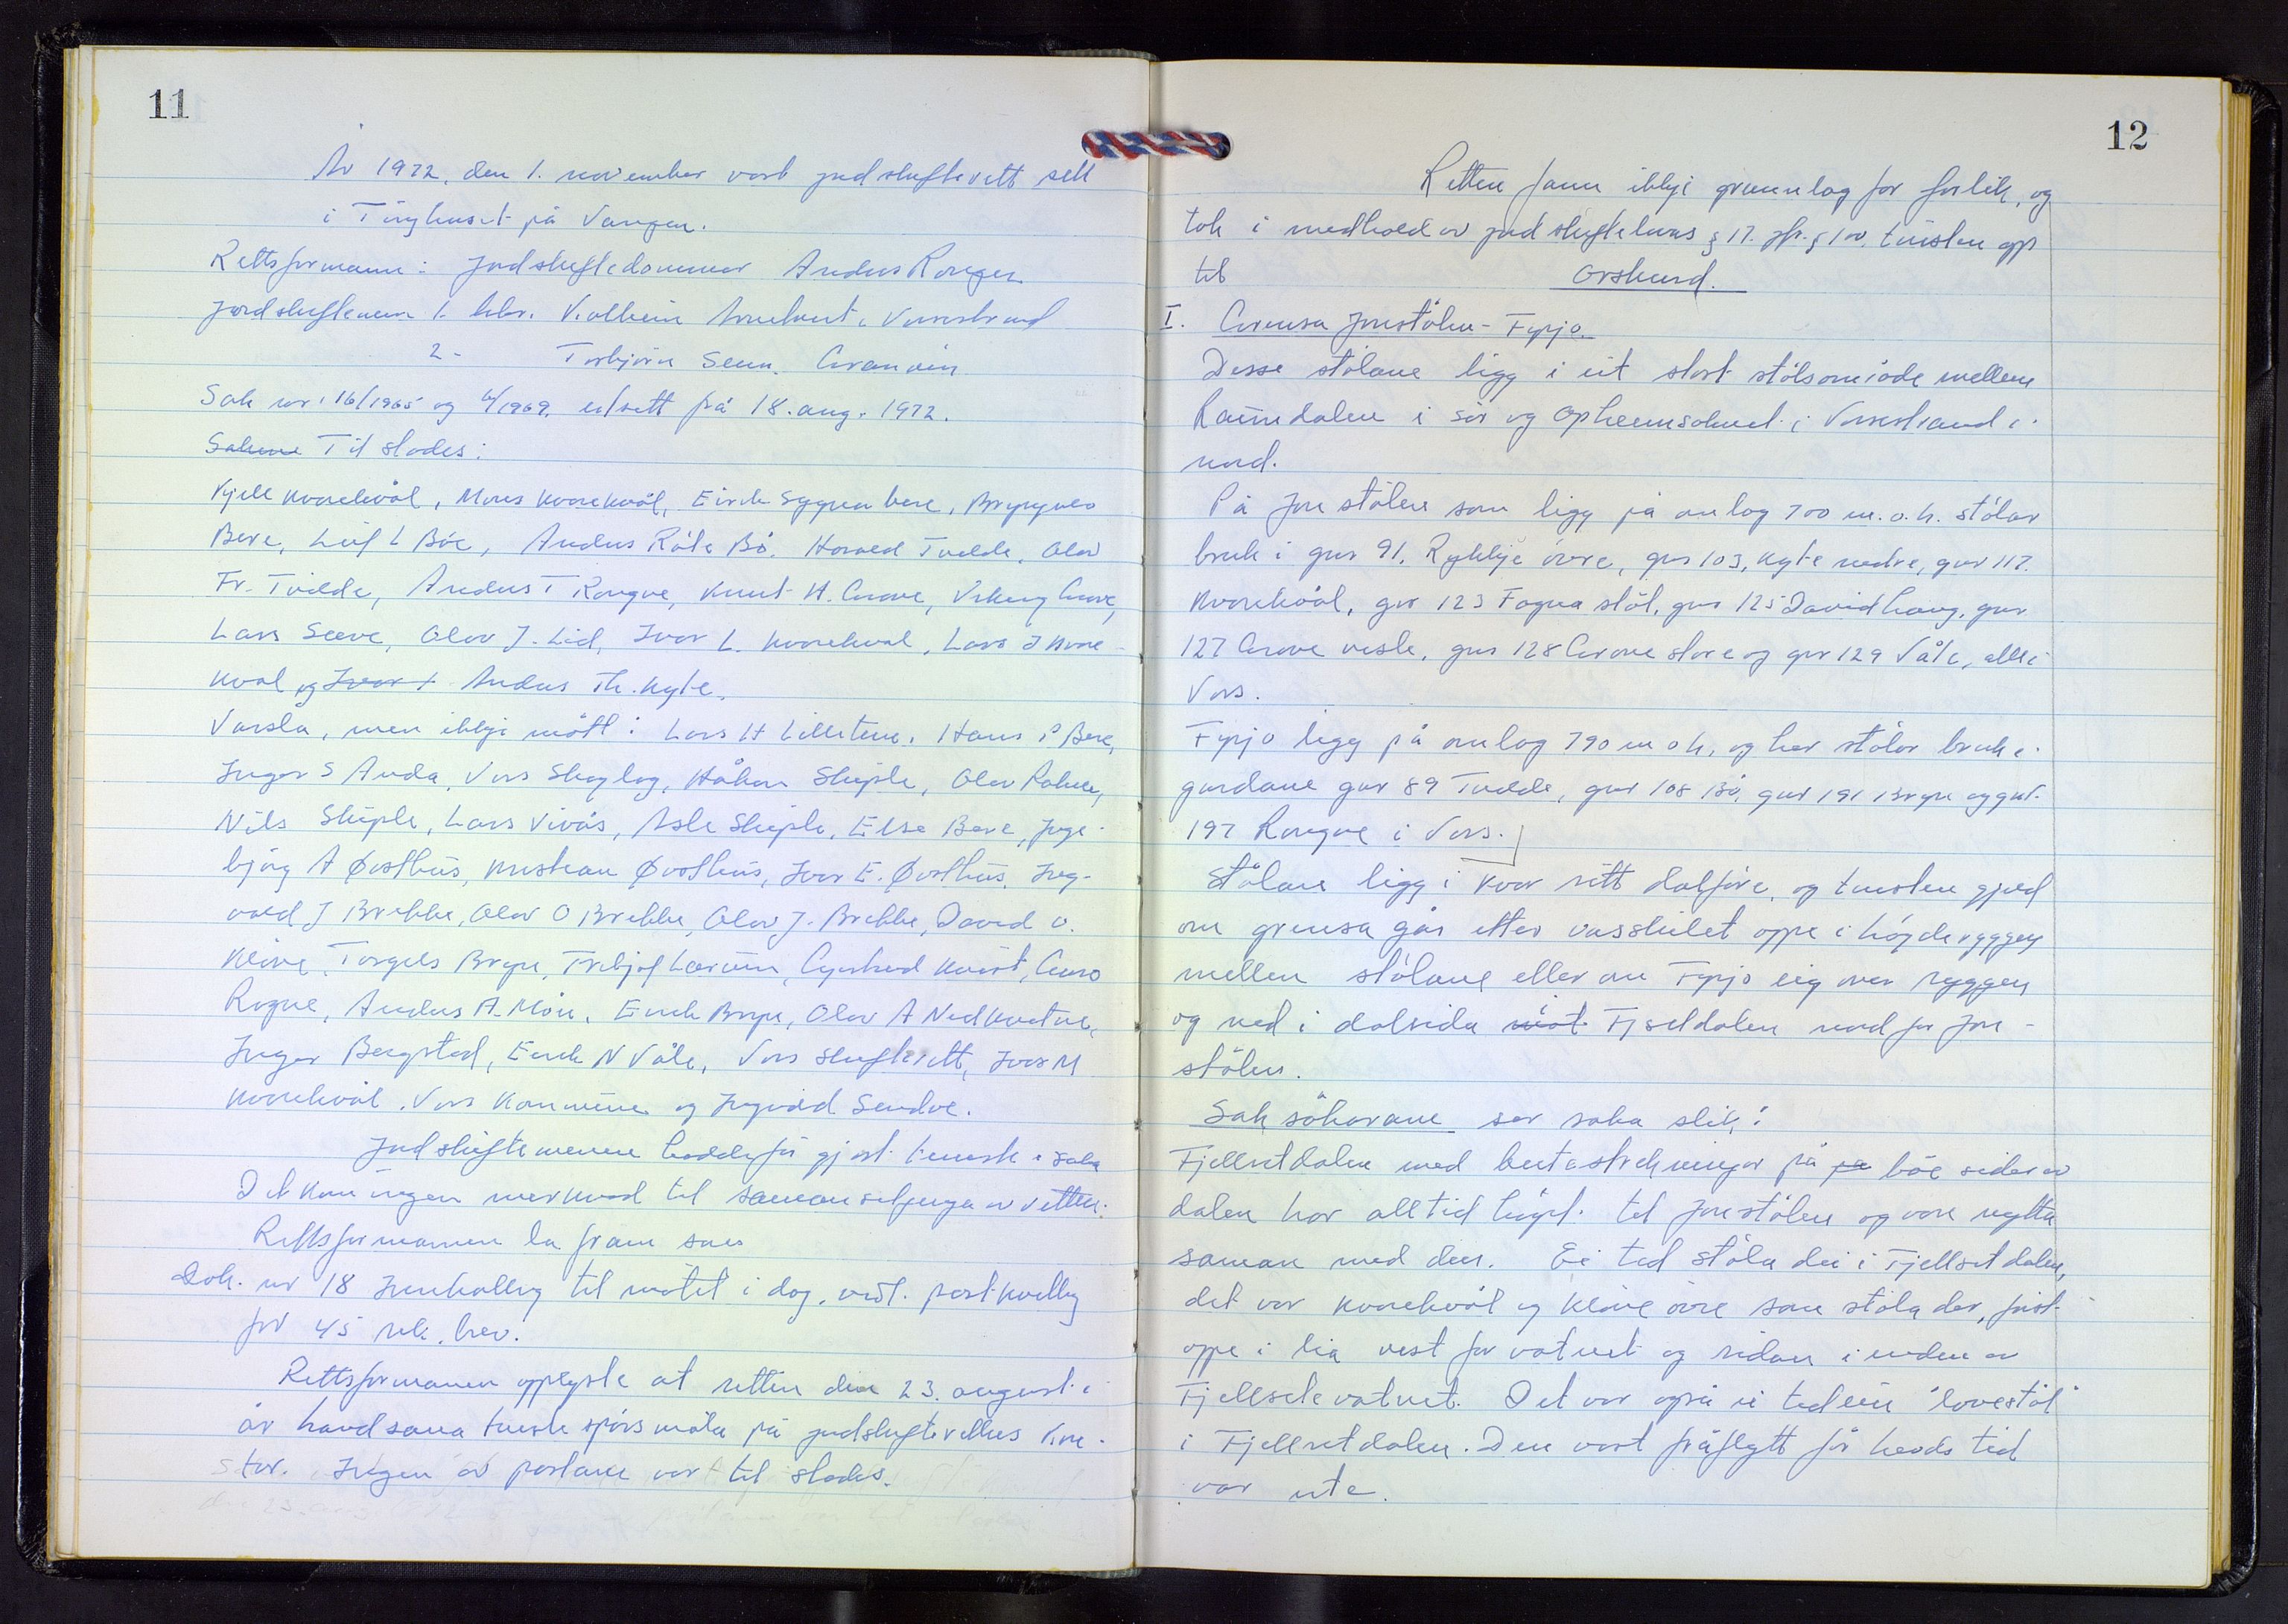 11
År 1972, den 1. november vart jordskifterett sett
i Tinghuset på Vangen.
Rettsformann: Jordskiftedommar Anders Ronger
Jordskiftemenn 1. Hbr. Vilhelm Arnetveit, Vossestrand
2 - Torbjørn Seim, Granvin
Sak nr. 16/1965 og 4/1969, utsett frå 18. aug. 1972.
Sakene Til stades:
Kjell Kvarekvål, Mons Kvarekvål, Eirik Sygnabere, Brynjulv
Bere, Leif L Bøe, Anders Råte Bø, Harald Tvilde, Olav
Fr. Tvilde, Anders T Rongve, Knut H. Grove, Viking Grove,
Lars Seeve, Olav J. Lid, Ivar L. Kvarekval, Lars J Kvare-
kval og Ivar L Anders Th. Kyte.
Varsla, men ikkje møtt: Lars H Lillestene, Hans P Bere,
Ingar S Anda, Voss Skoglag, Håkon Skiple, Olav Rokne,
Nils Skiple, Lars Vivås, Asle Skiple, Else Bere, Inge-
bjørg A Øvsthus, Kristian Øvsthus, Ivar E. Øvsthus, Ing-
vald J Brekke, Olav O Brekke, Olav J. Brekke, David O.
Kløve, Torgils Bryn, Gjertrud Kvist, Guro
Rogne, Anders A. Møn, Eirik Bryn, Olav A Nedkvitne,
Ingar Bergstad, Eirik N Våle, Voss skifterett, Ivar M
Kvarekvål, Voss Kommune og Ingvald Sendve.
Jordskiftemennene hadde før gjort teneste i saka
Det kom ingen merknad til samansetjinga av retten.
Rettsformannen la fram som
Dok. nr 18 Innkalling til møtet i dag, vedl. postkvittg
for 45 rek. brev.
Rettsformannen opplyste at retten den 23. august i
år handsama tvistespørsmåla på jordskifterettens kon-
tor. Ingen av partane var til stades.
12
Retten fann ikkje grunnlag for forlik, og
tok i medhold av jordskiftelovas § 17. jfr. § 100, tvisten opp
til Orskurd.
I. Grensa Jonstølen - Fyrjo.
Desse stølane ligg i eit stort stølsområde mellom
Raundalen i sør og Opheimsoknet i Vossestrand i
nord.
På Jonstølen som ligg på omlag 700 m.o.h. stølar
bruk i gnr 91, Rykkje øvre, gnr 103, Kyte nedre, gnr 117.
Kvarekvål, gnr 123 Fagnastøl, gnr 125 Davidhaug, gnr
127 Grove vesle, gnr 128 Grove store og gnr 129 Våle, alle i
Voss.
Fyrjo ligg på omlag 790 m o h, og her stølar bruk i
gardane gnr 89 Tvilde, gnr 108 Bø, gnr 191 Bryn og gnr
197 Rongve i Voss.
Stølane ligg i kvar sitt dalføre, og tvisten gjeld
om grensa går etter vasskilet oppe i høgderyggen
mellom stølane eller om Fyrjo eig over ryggen
og ned i dalsida mot Fjseldalen nord for Jon-
stølen.
Saksøkarane ser saka slik:
Fjellsetdalen med beitestrekningar på på båe sider av
dalen har alltid høyrt til Jonstølen og vore nytta
saman med den. Ei tid støla dei i Fjellsetdalen,
det var Kvarekvål og Kløve øvre som støla der, først
oppe i lia vest for vatnet og sidan i enden av
Fjellsetevatnet. Det var også ei tid ein "lovestøl"
i Fjellsetdalen. Den vart fråflytt før heads tid
var ute.